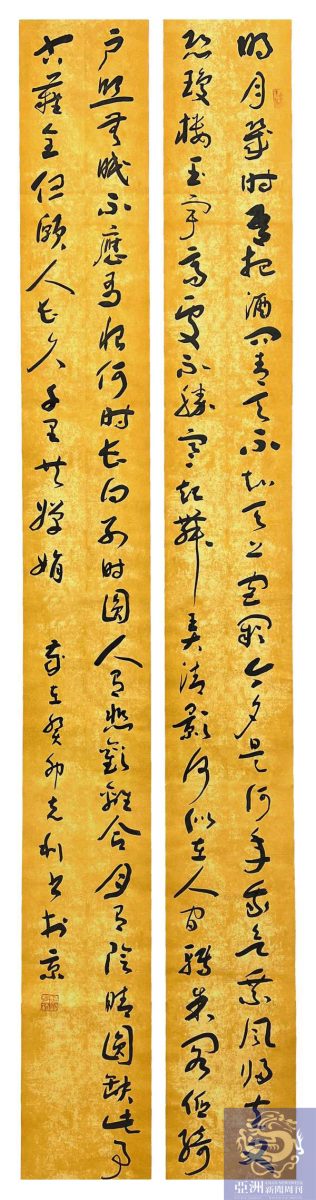 明月幾时有把酒问青天不知天上宫阙今夕是何年我欲乘风归去又
恐瓊樓玉宇高處不勝寒起舞弄清影何似在人间轉朱阁低綺
户照無眠不應有恨何时长向别时圆人有悲歡離合月有陰晴圆缺此事
古難全但願人长久千里共嬋娟 岁在癸卯克利书於京
亞洲新聞周刊